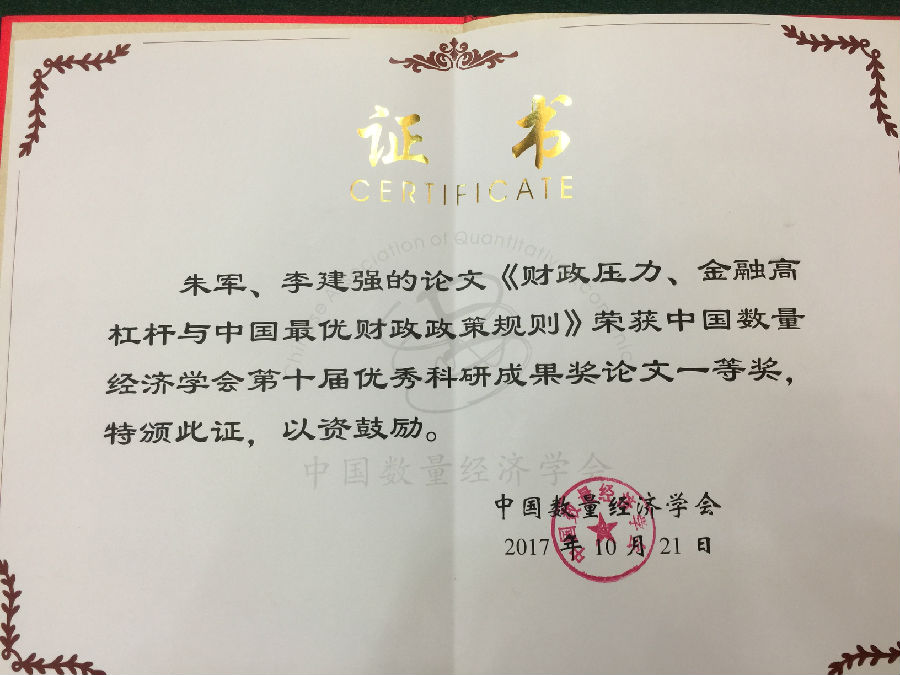 证 书
CERTIFICATE
朱军、李建强的论文《财政压力、金融高
杠杆与中国最优财政政策规则》荣获中国数量
经济学会第十届优秀科研成果奖论文一等奖，
特颁此证，以资鼓励。
中国数量经济学会
中国数量经济学会
2017 年 10 月 21 日
中国数量经济学会